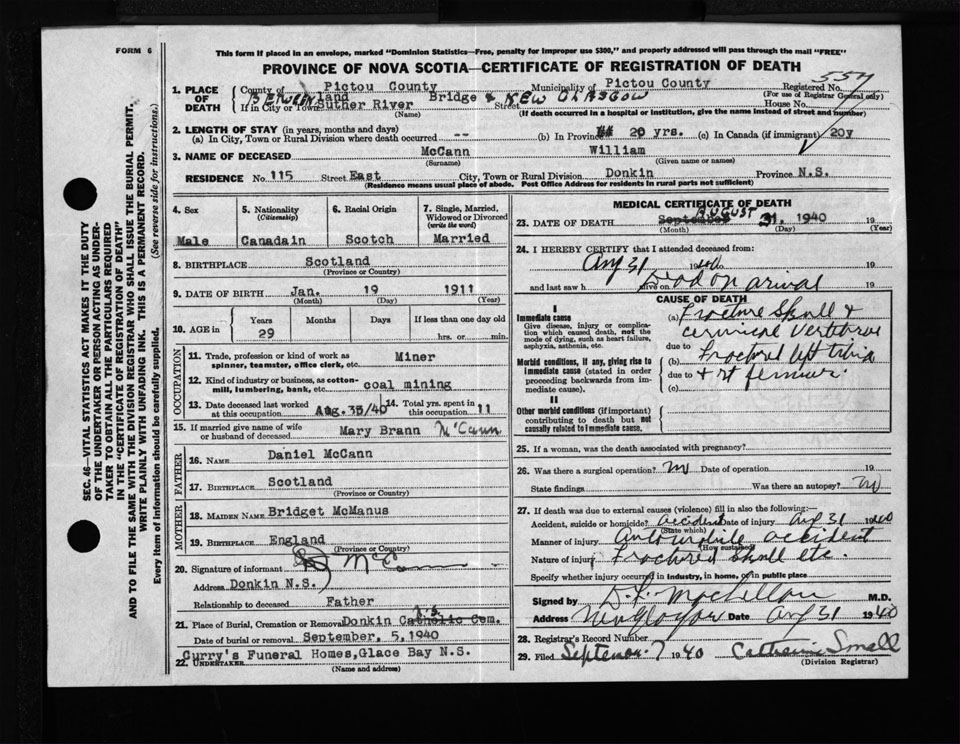 FORM 6
This form if placed in an envelope, marked "Dominion Statistics—Free, penalty for improper use $300," and properly addressed will pass through the mail "FREE"
PROVINCE OF NOVA SCOTIA—CERTIFICATE OF REGISTRATION OF DEATH
557
1. PLACE OF DEATH
County of Pictou County Municipality of Pictou County Registered No.
(For use of Registrar General only)
BETWEEN land Bridge & NEW GLASGOW
If in City or Town Suther River Street House No.
(Name) (If death occurred in a hospital or institution, give its name instead of street and number)
2. LENGTH OF STAY (in years, months and days)
(a) In City, Town or Rural Division where death occurred -- (b) In Province 20 yrs. (c) In Canada (if immigrant) 20y
3. NAME OF DECEASED McCann William
(Surname) (Given name or names)
RESIDENCE No. 115 Street East City, Town or Rural Division Donkin Province N.S.
(Residence means usual place of abode. Post Office Address for residents in rural parts not sufficient)
4. Sex
Male
5. Nationality (Citizenship)
Canadain
6. Racial Origin
Scotch
7. Single, Married, Widowed or Divorced (write the word)
Married
8. BIRTHPLACE Scotland
(Province or Country)
9. DATE OF BIRTH Jan. 19 1911
(Month) (Day) (Year)
10. AGE in Years Months Days If less than one day old
29 hrs. or min.
OCCUPATION
11. Trade, profession or kind of work as spinner, teamster, office clerk, etc. Miner
12. Kind of industry or business, as cotton-mill, lumbering, bank, etc. coal mining
13. Date deceased last worked at this occupation Aug. 35/40
14. Total yrs. spent in this occupation 11
15. If married give name of wife or husband of deceased Mary Brann McCann
FATHER
16. NAME Daniel McCann
17. BIRTHPLACE Scotland
(Province or Country)
MOTHER
18. MAIDEN NAME Bridget McManus
19. BIRTHPLACE England
(Province or Country)
20. Signature of informant McCann
Address Donkin N.S.
Relationship to deceased Father
21. Place of Burial, Cremation or Removal Donkin Catholic Cem.
Date of burial or removal September, 5, 1940
22. UNDERTAKER Curry's Funeral Homes, Glace Bay N.S.
(Name and address)
MEDICAL CERTIFICATE OF DEATH
AUGUST
23. DATE OF DEATH September 31. 1940 19
(Month) (Day) (Year)
24. I HEREBY CERTIFY that I attended deceased from:
Aug 31 1940 to 19
and last saw h alive on Dead on arival 19
CAUSE OF DEATH
I
Immediate cause
Give disease, injury or complication which caused death, not the mode of dying, such as heart failure, asphyxia, asthenia, etc.
Morbid conditions, if any, giving rise to immediate cause (stated in order proceeding backwards from immediate cause).
II
Other morbid conditions (if important) contributing to death but not causally related to immediate cause.
(a) Fracture Skull &
cervical vertebrae
due to
(b) Fractured left tibia
due to & rt femur.
(c)
25. If a woman, was the death associated with pregnancy?
26. Was there a surgical operation? No Date of operation 19
State findings Was there an autopsy? No
27. If death was due to external causes (violence) fill in also the following:
Accident, suicide or homicide? accident Date of injury Aug 31 1940
(State which)
Manner of injury Automobile accident
(How sustained)
Nature of injury Fractured Skull etc.
Specify whether injury occurred in industry, in home, or in public place
Signed by MacLellan M.D.
Address New Glasgow Date Aug 31 1940
28. Registrar's Record Number
29. Filed September 7 1940 Catherine Small
(Division Registrar)
SEC. 46—VITAL STATISTICS ACT MAKES IT THE DUTY
OF THE UNDERTAKER OR PERSON ACTING AS UNDER-
TAKER TO OBTAIN ALL THE PARTICULARS REQUIRED
IN THE "CERTIFICATE OF REGISTRATION OF DEATH"
AND TO FILE THE SAME WITH THE DIVISION REGISTRAR WHO SHALL ISSUE THE BURIAL PERMIT.
WRITE PLAINLY WITH UNFADING INK. THIS IS A PERMANENT RECORD.
Every item of information should be carefully supplied. (See reverse side for instructions.)